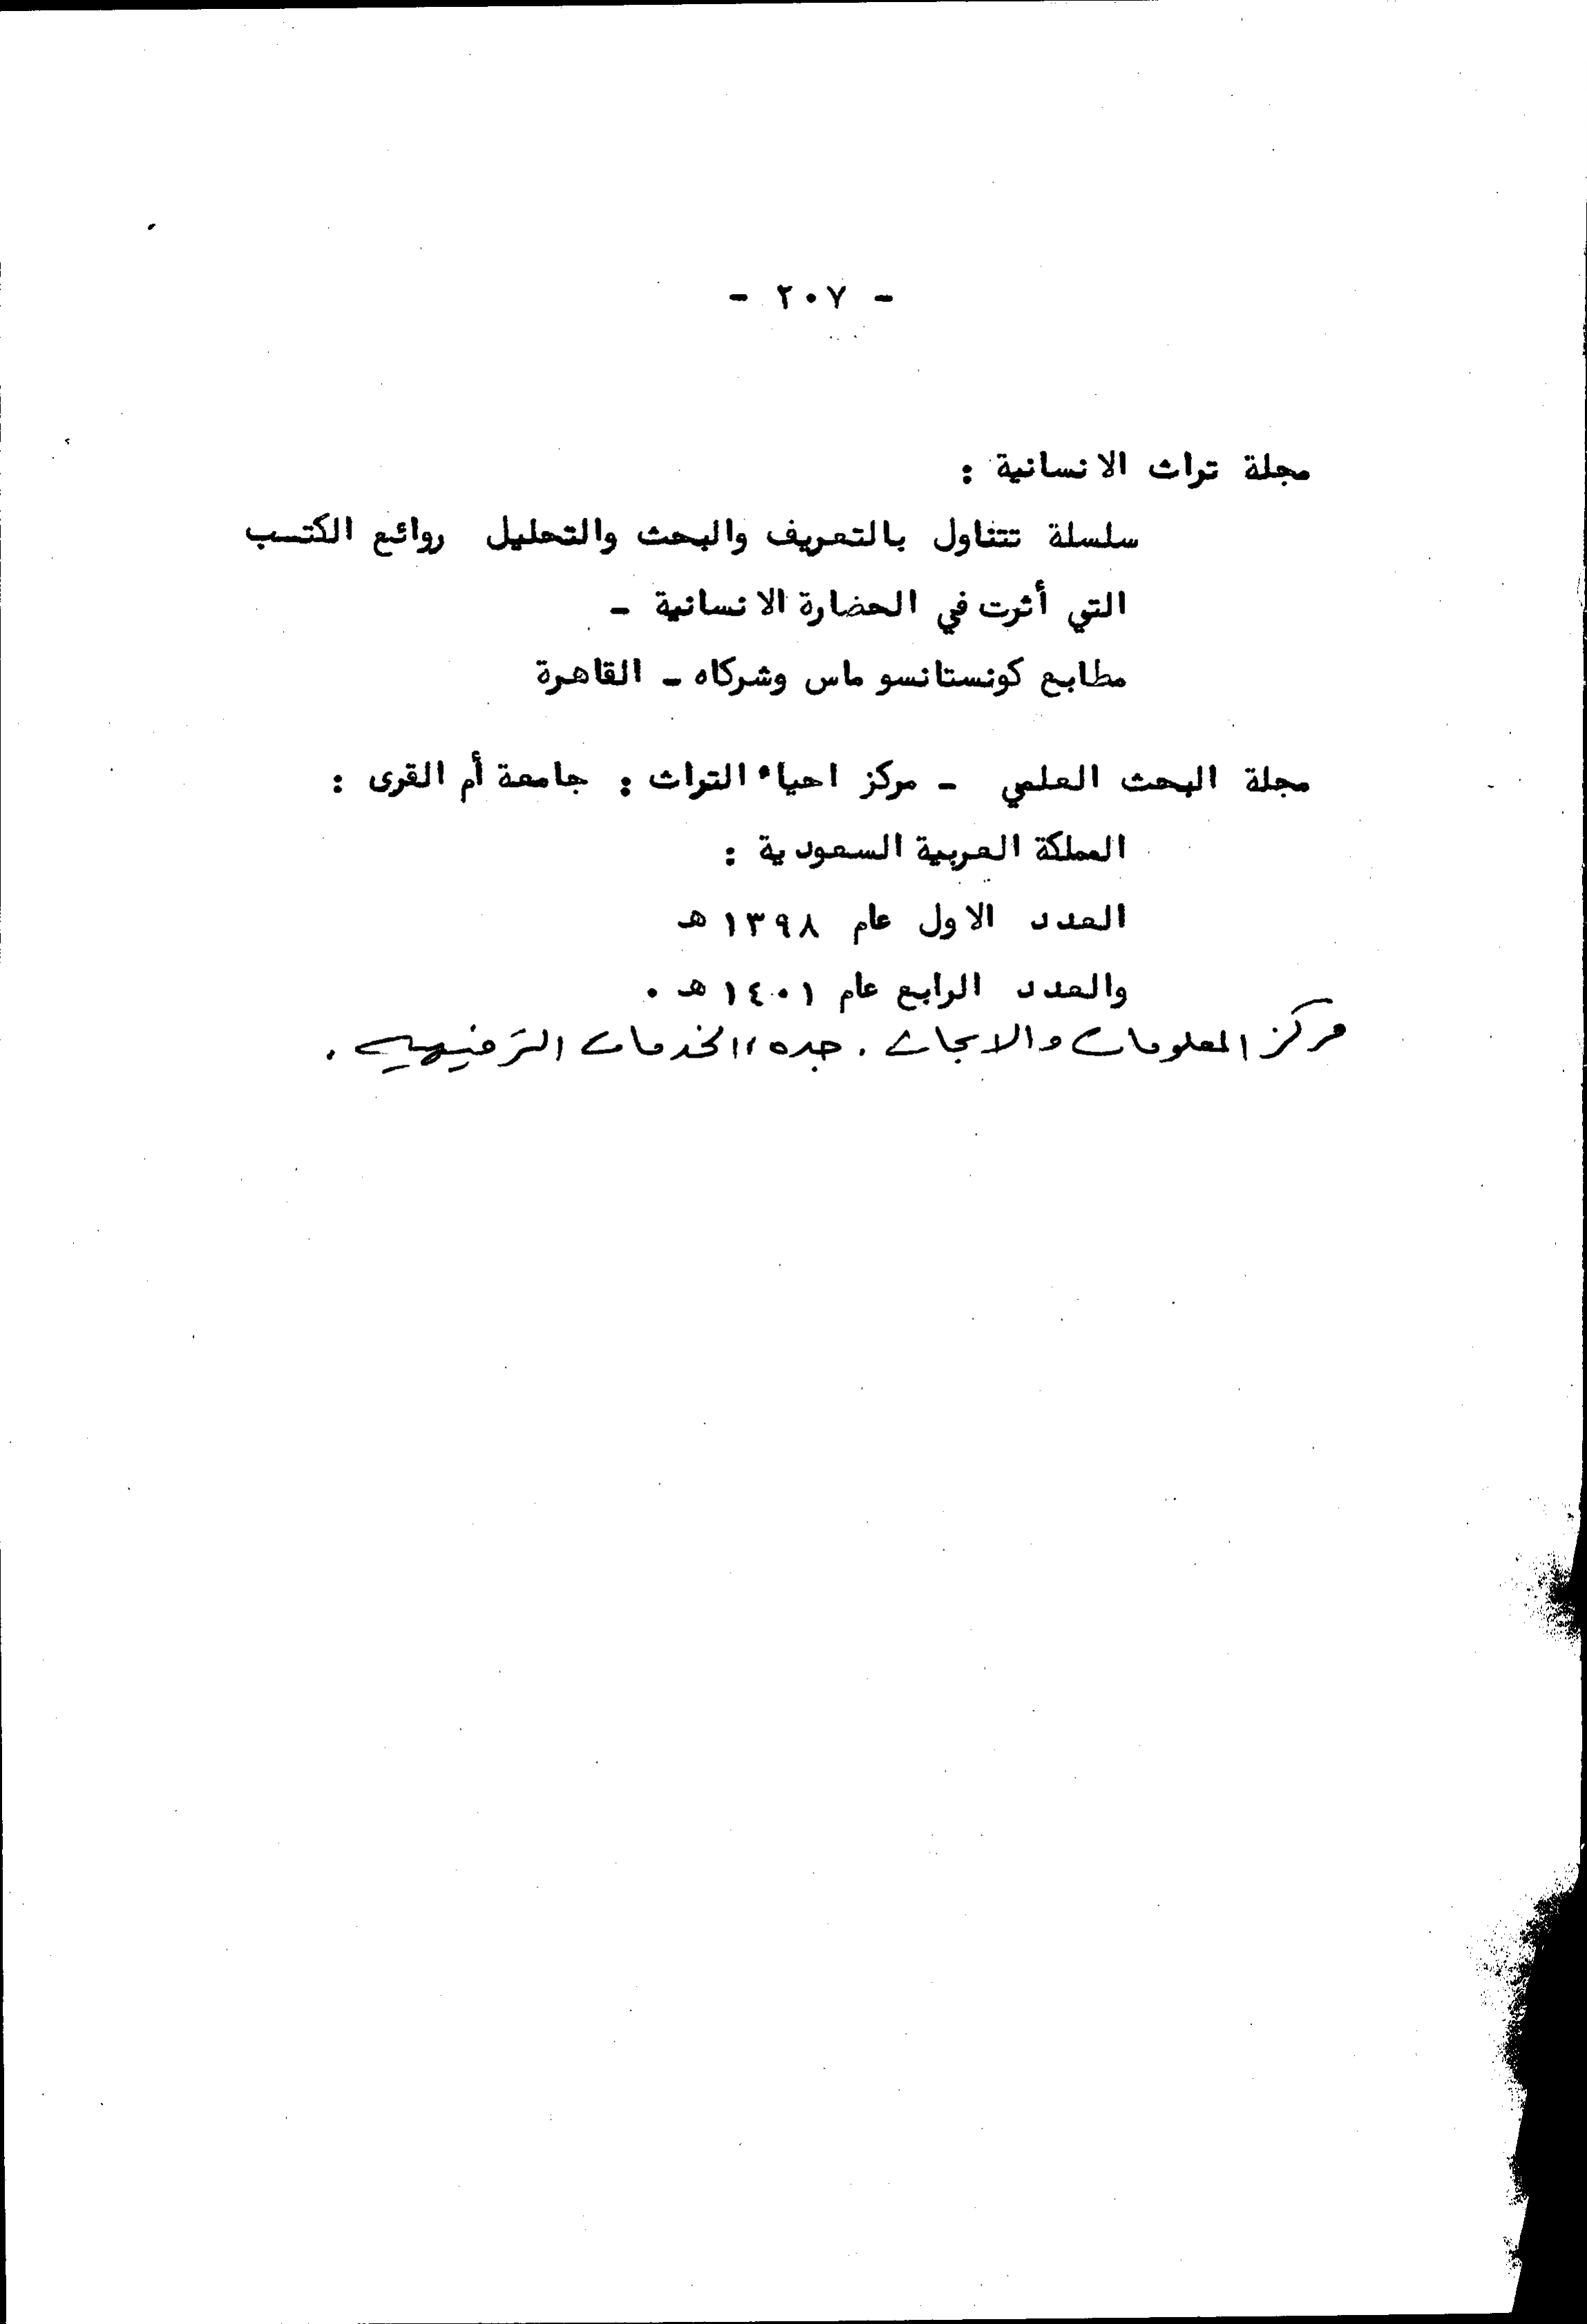 - ٢٠٧ -
مجلة تراث الانسانية :
سلسلة تتناول بالتعريف والبحث والتحليل روائع الكتسب
التي أثرت في الحضارة الانسانية -
مطابع كونستانسو ماس وشركاه - القاهرة
مجلة البحث العلمي - مركز احياء التراث : جامعة أم القرى :
المملكة العربية السعودية :
العدد الاول عام ١٣٩٨ هـ
والعدد الرابع عام ١٤٠١ هـ .
مركز المعلومات والابحاث . جده ،، الخدمات الترفيهيه .